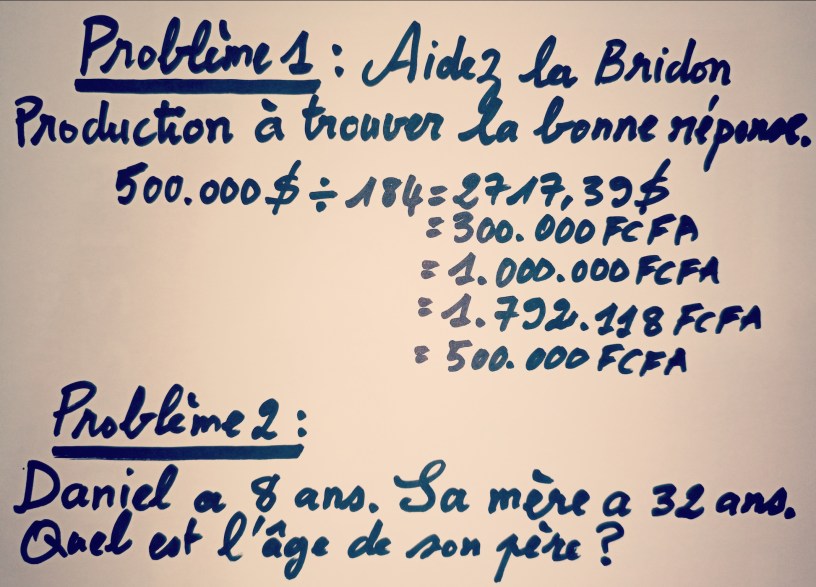 Problème 1 : Aidez la Bridon
Production à trouver la bonne réponse.
500.000$ ÷ 184 = 2717,39$
= 300.000 FCFA
= 1.000.000 FCFA
= 1.792.118 FCFA
= 500.000 FCFA
Problème 2 :
Daniel a 8 ans. Sa mère a 32 ans.
Quel est l'âge de son père ?